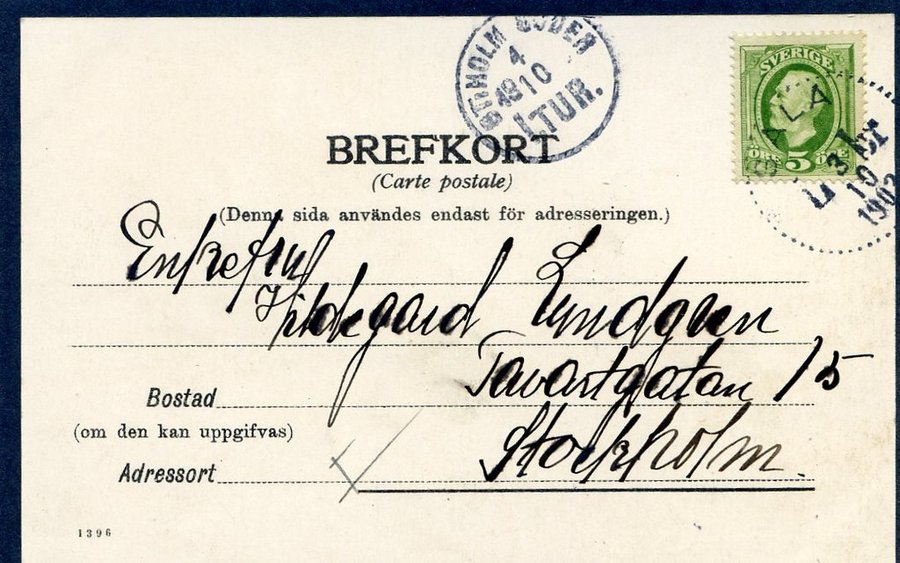 STHOLM SÖDER
4
1910
1.TUR.
SVERIGE
ÖRE 5 ÖRE
SALA
BREFKORT
(Carte postale)
(Denna sida användes endast för adresseringen.)
Enkefru
Hildegard Lundgren
Tavastgatan 15
Bostad
(om den kan uppgifvas)
Stockholm.
Adressort
1396